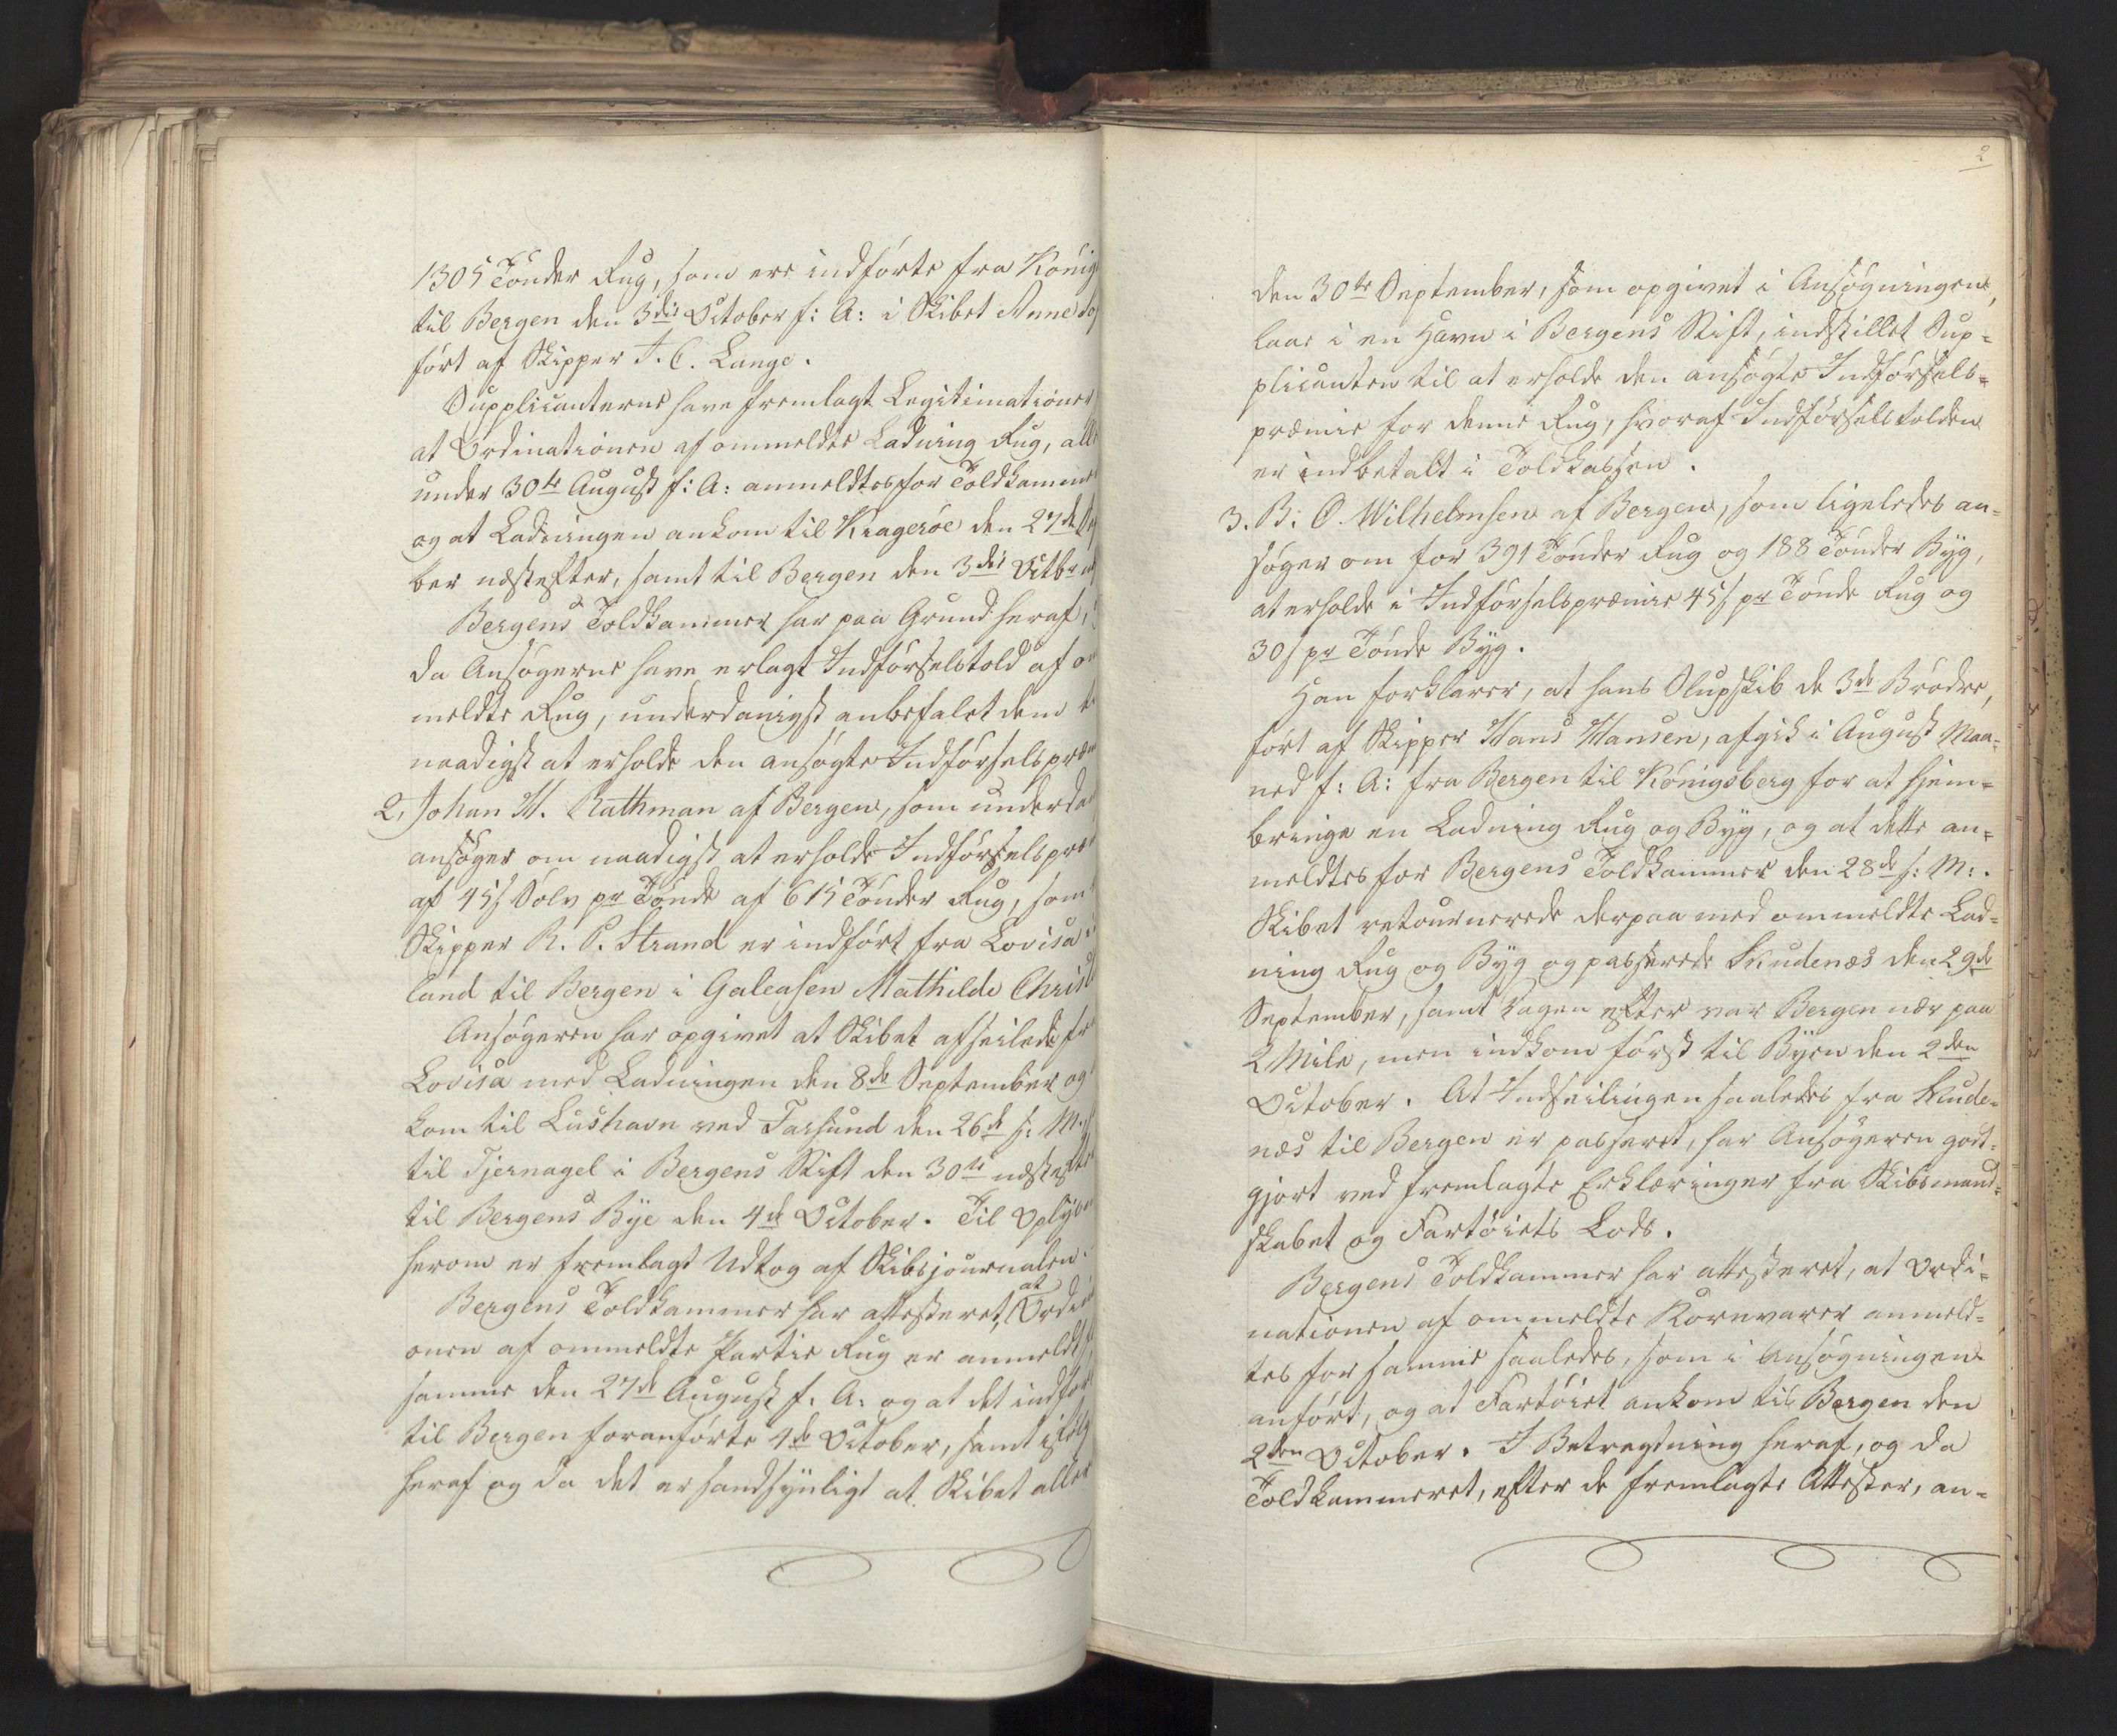 1305 Tønder Rug, som ere indførte fra Kønig
til Bergen den 3die October f: A: i Skibet Anne So
ført af Skipper F. C. Lange.
Supplicanterne have fremlagt Legitimationer,
at Ordinationen af ommeldte Ladning Rug, alle
under 30te August f: A: anmeldtes for Toldkamme
og at Ladningen ankom til Kragerøe den 27de Se
ber næstefter, samt til Bergen den 3die Octbr
Bergens Toldkammer har paa Grund heraf,
da Ansøgerne have erlagt Indførselstold af om
meldte Rug, underdanigst anbefalet dem
naadigst at erholde den ansøgte Indførselspræm
2, Johan H. Rathman af Bergen, som underda
ansøger om naadigst at erholde Indførselspræ
af 45ſ Sølv pr Tønde af 615 Tønder Rug, som
Skipper R. P. Strand er indført fra Lovisa i
land til Bergen i Galeasen Mathilde Christ
Ansøgeren har opgivet at Skibet afseilede fr
Lovisa med Ladningen den 8de September og
kom til Lushavn ved Farsund den 26de s: M.
til Tjernagel i Bergens Stift den 30te næstefter
til Bergens Bye den 4de October. Til Oplysn
herom er fremlagt Udtog af Skibsjournalen.
Bergens Toldkammer har attesteret, at Ordin
onen af ommeldte Partie Rug er anmeldt f
samme den 27de August f. A. og at det indfør
til Bergen foranførte 4de October, samt ifølg
heraf og da det er sandsynligt at Skibet aller
2
den 30te September, som opgivet i Ansøgningen,
laae i en Havn i Bergens Stift, indstillet Sup=
plicanten til at erholde den ansøgte Indførsels=
præmie for denne Rug, hvoraf Indførselstolden
er indbetalt i Toldkassen.
3. B. O. Wilhelmsen af Bergen, som ligeledes an=
søger om for 391 Tønder Rug og 188 Tønder Byg,
at erholde i Indførselspræmie 45ſ pr Tønde Rug og
30ſ pr Tønde Byg.
Han forklarer, at hans Slupskib de 3de Brødre,
ført af Skipper Hans Hansen, afgik i August Maa=
ned f: A: fra Bergen til Kønigsberg for at hjem=
bringe en Ladning Rug og Byg, og at dette an=
meldtes for Bergens Toldkammer den 28de s: M:.
Skibet retournerede derpaa med ommeldte Lad=
ning Rug og Byg og passerede Skudenæs den 29de
September, samt Dagen efter var Bergen nær paa
2 Mile, men indkom først til Byen den 2den
October. At Indseilingen saaledes fra Skude=
næs til Bergen er passeret, har Ansøgeren godt=
gjort ved fremlagte Erklæringer fra Skibsmand=
skabet og Fartøiets Lods.
Bergens Toldkammer har attesteret, at Ordi=
nationen af ommeldte Kornvarer anmeld=
tes for samme saaledes, som i Ansøgningen
anført, og at Fartøiet ankom til Bergen den
2den October. I Betragtning heraf, og da
Toldkammeret, efter de fremlagte Attester, an=